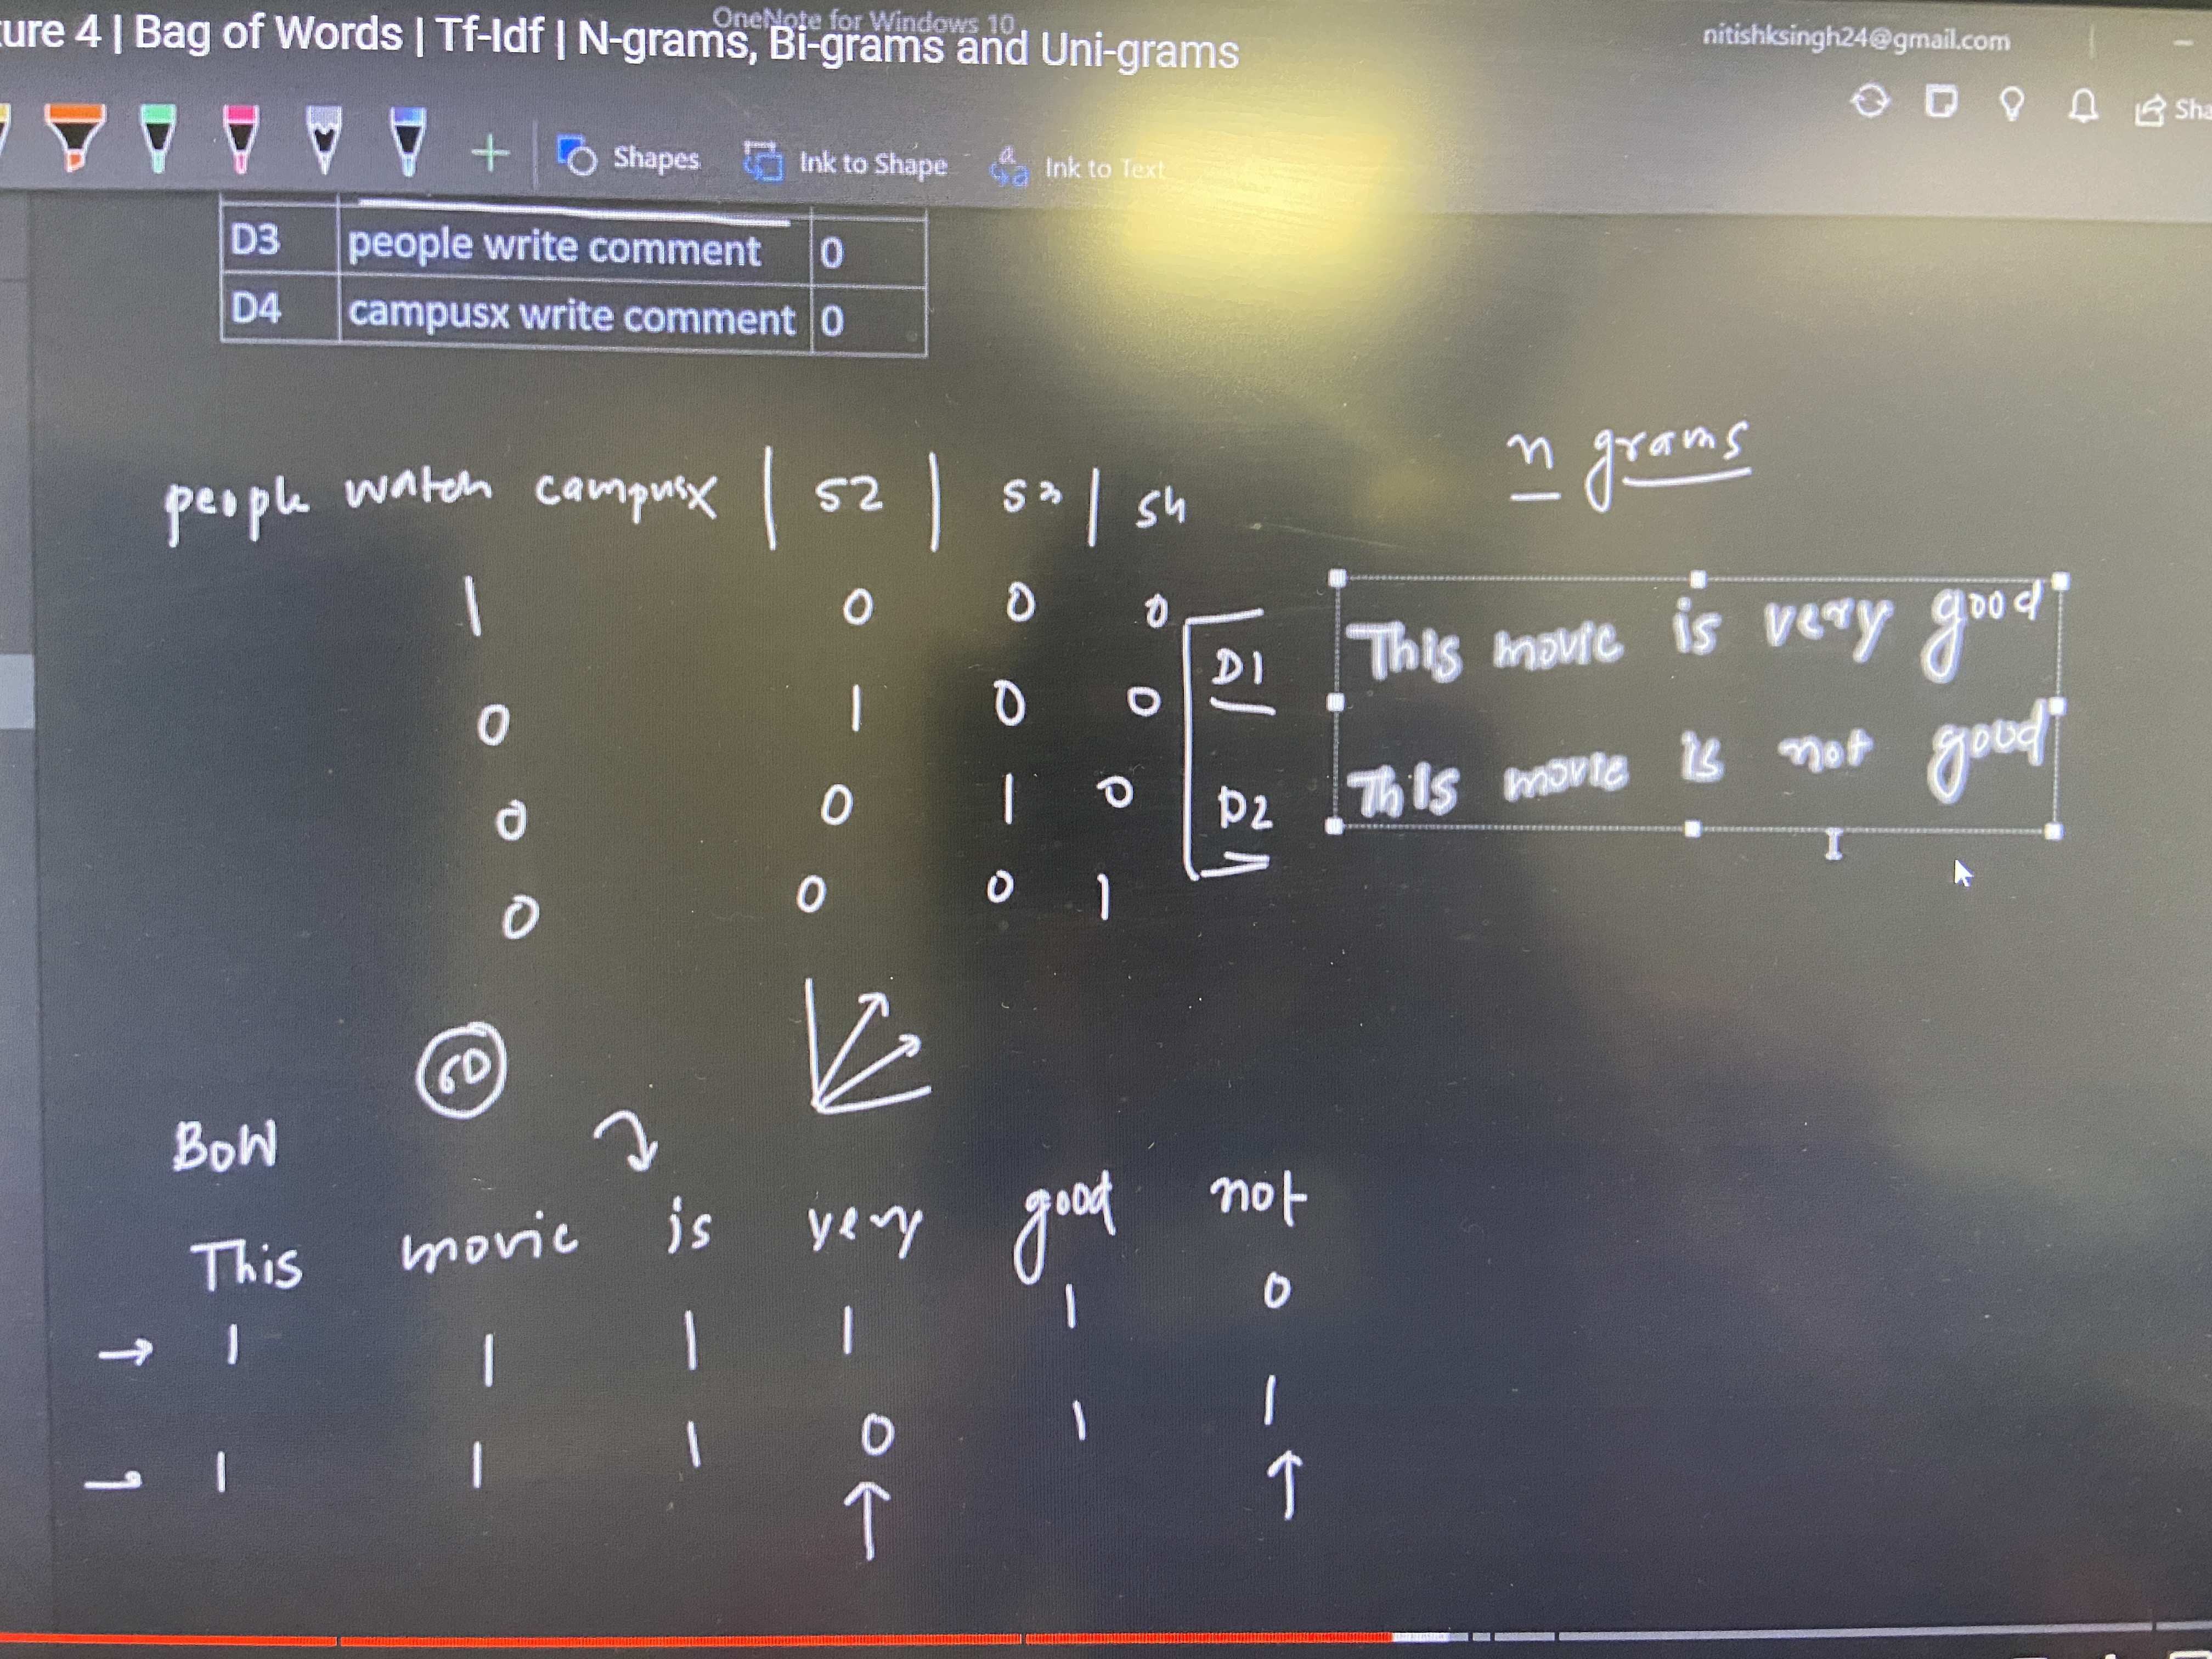 ure 4 | Bag of Words | Tf-Idf | N-grams, Bi-grams and Uni-grams
OneNote for Windows 10
nitishksingh24@gmail.com
Shapes
Ink to Shape
Ink to Text
Sha
D3 people write comment 0
D4 campusx write comment 0
n grams
people watch campusx | S2 | S3 | S4
1 0 0 0
0 1 0 0
0 0 1 0
0 0 0 1
D1 This movie is very good
D2 This movie is not good
6D
BoW
This movie is very good not
→ 1 1 1 1 1 0
→ 1 1 1 0 1 1